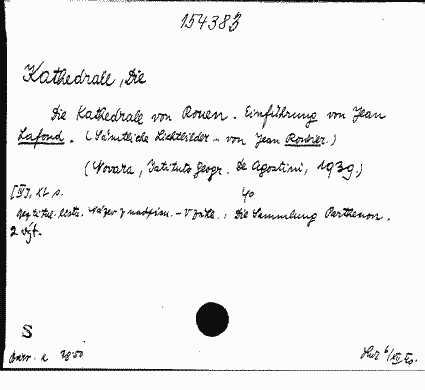 154383
Kathedrale, Die
Die Kathedrale von Rouen. Einführung von Jean
Lafond. (Sämtliche Lichtbilder - von Jean Roubier.)
(Novara, Istituto Geogr. De Agostini, 1939.)
[IV], XL s. 40
Die Sammlung Parthenon.
2 výt.
S